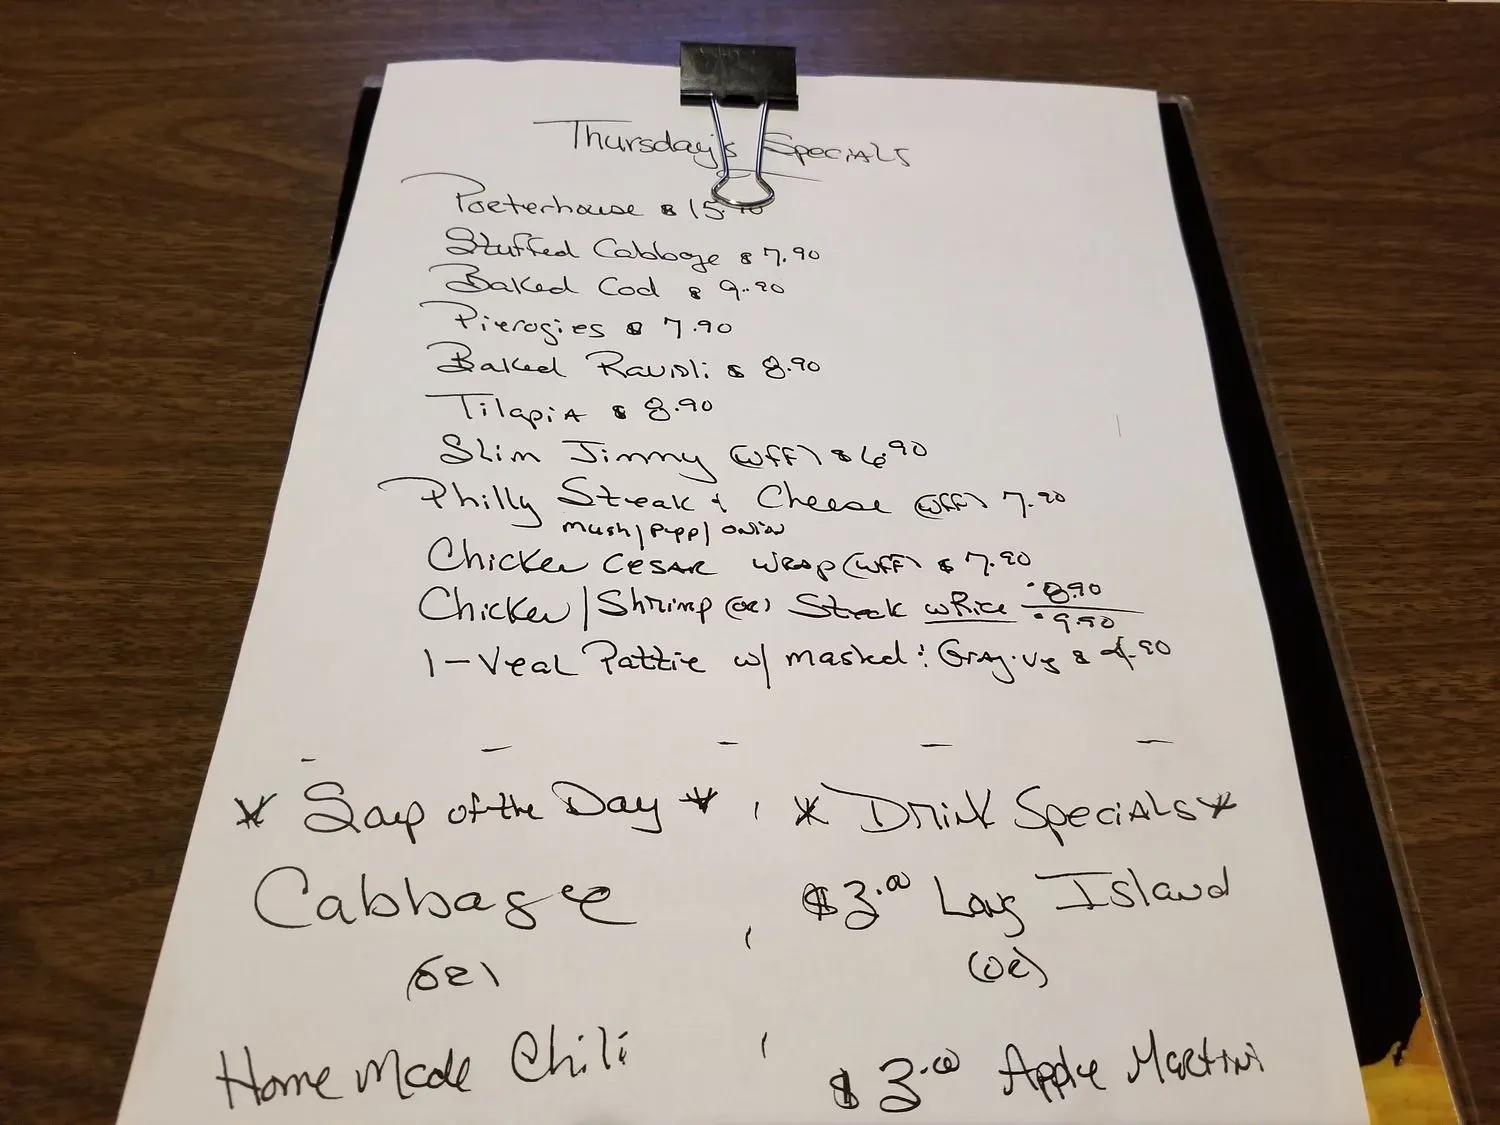 Thursday's Specials
Porterhouse $15.90
Stuffed Cabbage $7.90
Baked Cod $9.90
Pierogies $7.90
Baked Ravioli $8.90
Tilapia $8.90
Slim Jimmy (WFF) $6.90
Philly Steak & Cheese (WFF) 7.90
mush/pepp/onion
Chicken CESAR Wrap (WFF) $7.90
Chicken/Shrimp (or) Steak w Rice 8.90
9.90
1-Veal Pattie w/ mashed & Gravy $4.90
* Soup of the Day *
Cabbage
(or)
Home Made Chili
* Drink Specials *
$3.00 Long Island
(or)
$3.00 Apple Martini